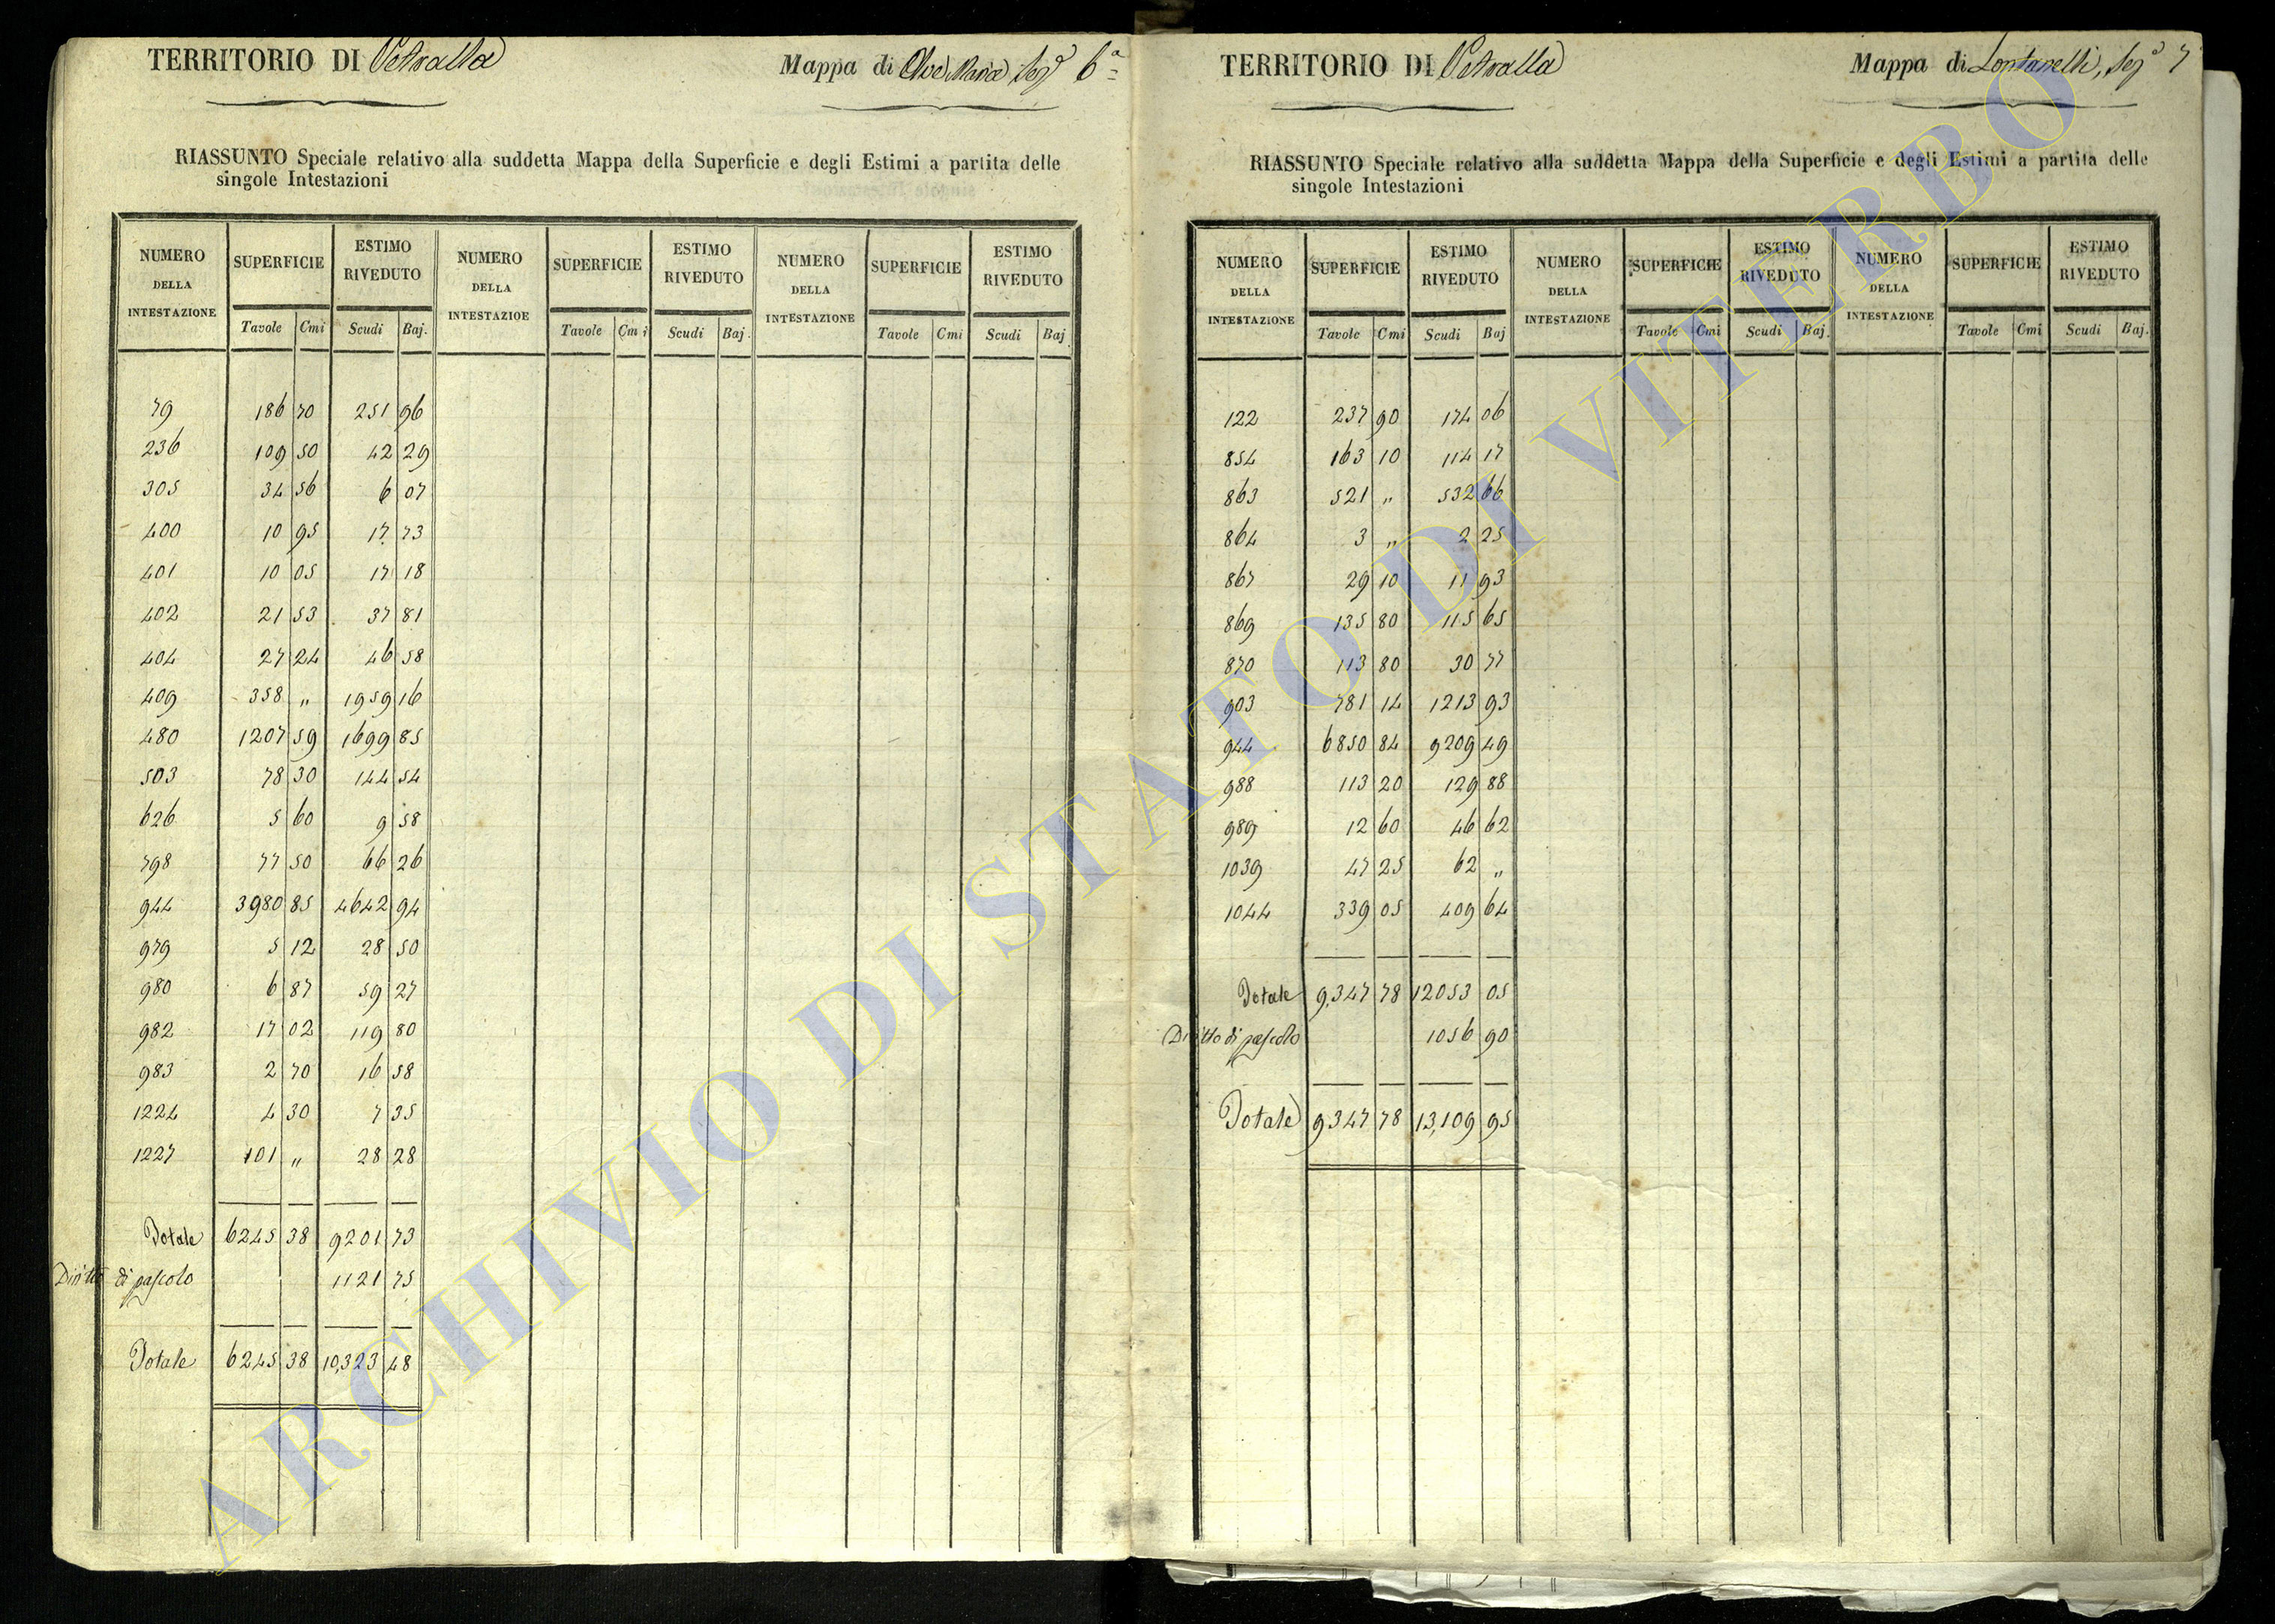 TERRITORIO DI Vetralla
Mappa di Ave Maria Sez.ª 6ª
RIASSUNTO Speciale relativo alla suddetta Mappa della Superficie e degli Estimi a partita delle
singole Intestazioni
NUMERO DELLA INTESTAZIONE SUPERFICIE ESTIMO RIVEDUTO NUMERO DELLA INTESTAZIOE SUPERFICIE ESTIMO RIVEDUTO NUMERO DELLA INTESTAZIONE SUPERFICIE ESTIMO RIVEDUTO
Tavole Cmi Scudi Baj. Tavole Cmi Scudi Baj. Tavole Cmi Scudi Baj.
79 186 70 251 96
236 109 50 42 29
305 34 56 6 07
400 10 95 17 73
401 10 05 17 18
402 21 53 37 81
404 27 24 46 58
409 358 „ 1959 16
480 1207 59 1699 85
503 78 30 144 54
626 5 60 9 58
798 77 50 66 26
944 3980 85 4642 94
979 5 12 28 50
980 6 87 59 27
982 17 02 119 80
983 2 70 16 58
1224 4 30 7 35
1227 101 „ 28 28
Totale 6245 38 9201 73
Diritto di pascolo 1121 75
Totale 6245 38 10,323 48
TERRITORIO DI Vetralla
Mappa di Sez.ª 7
RIASSUNTO Speciale relativo alla suddetta Mappa della Superficie e degli Estimi a partita delle
singole Intestazioni
NUMERO DELLA INTESTAZIONE SUPERFICIE ESTIMO RIVEDUTO NUMERO DELLA INTESTAZIONE SUPERFICIE ESTIMO RIVEDUTO NUMERO DELLA INTESTAZIONE SUPERFICIE ESTIMO RIVEDUTO
Tavole Cmi Scudi Baj Tavole Cmi Scudi Baj. Tavole Cmi Scudi Baj.
122 237 90 174 06
854 163 10 114 17
863 521 „ 532 66
864 3 „ 2 25
867 29 10 11 93
869 135 80 115 65
870 113 80 30 77
903 781 14 1213 93
944 6850 84 9209 49
988 113 20 129 88
989 12 60 46 62
1039 47 25 62 „
1044 339 05 409 64
Totale 9,347 78 12053 05
Diritto di pascolo 1056 90
Totale 9347 78 13,109 95
ARCHIVIO DI STATO DI VITERBO